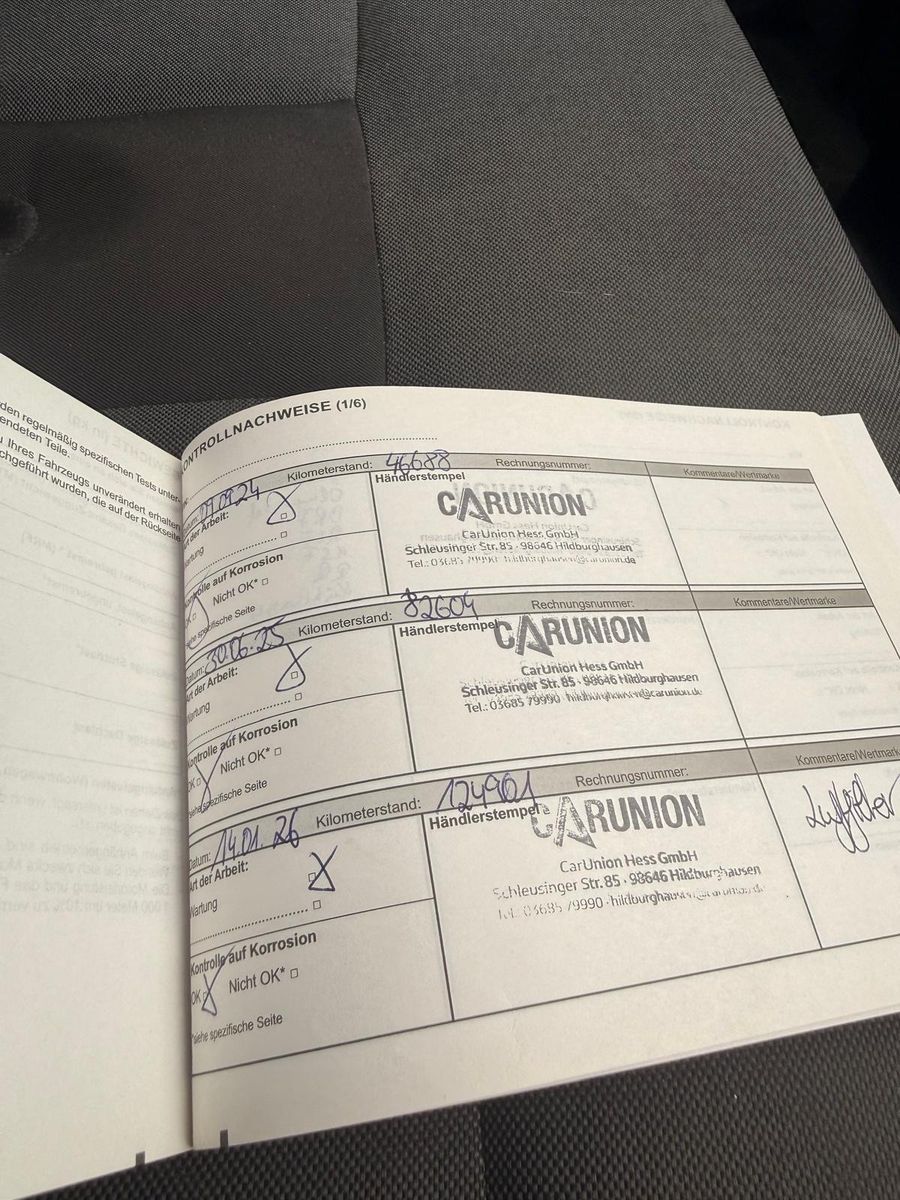 den regelmäßig spezifischen Tests unter-
endeten Teile.
Ihres Fahrzeugs unverändert erhalten
chgeführt wurden, die auf der Rückseite
ONTROLLNACHWEISE (1/6)
Datum: 09.24 Kilometerstand: 46688 Rechnungsnummer: Kommentare/Wertmarke
Art der Arbeit:
Händlerstempel
CARUNION
Wartung
CarUnion Hess GmbH
Schleusinger Str. 85 · 98646 Hildburghausen
Tel.: 03685 79990 hildburghausen@carunion.de
Kontrolle auf Korrosion
OK Nicht OK*
siehe spezifische Seite
Datum: 30.06.25 Kilometerstand: 82604 Rechnungsnummer: Kommentare/Wertmarke
Art der Arbeit:
Händlerstempel
CARUNION
Wartung
CarUnion Hess GmbH
Schleusinger Str. 85 · 98646 Hildburghausen
Tel.: 03685 79990 hildburghausen@carunion.de
Kontrolle auf Korrosion
OK Nicht OK*
siehe spezifische Seite
Datum: 14.01.26 Kilometerstand: 124901 Rechnungsnummer: Kommentare/Wertmark
Art der Arbeit:
Händlerstempel
CARUNION
Wartung
CarUnion Hess GmbH
Schleusinger Str. 85 · 98646 Hildburghausen
Tel.: 03685 79990 · hildburghausen@carunion.de
Kontrolle auf Korrosion
OK Nicht OK*
*siehe spezifische Seite